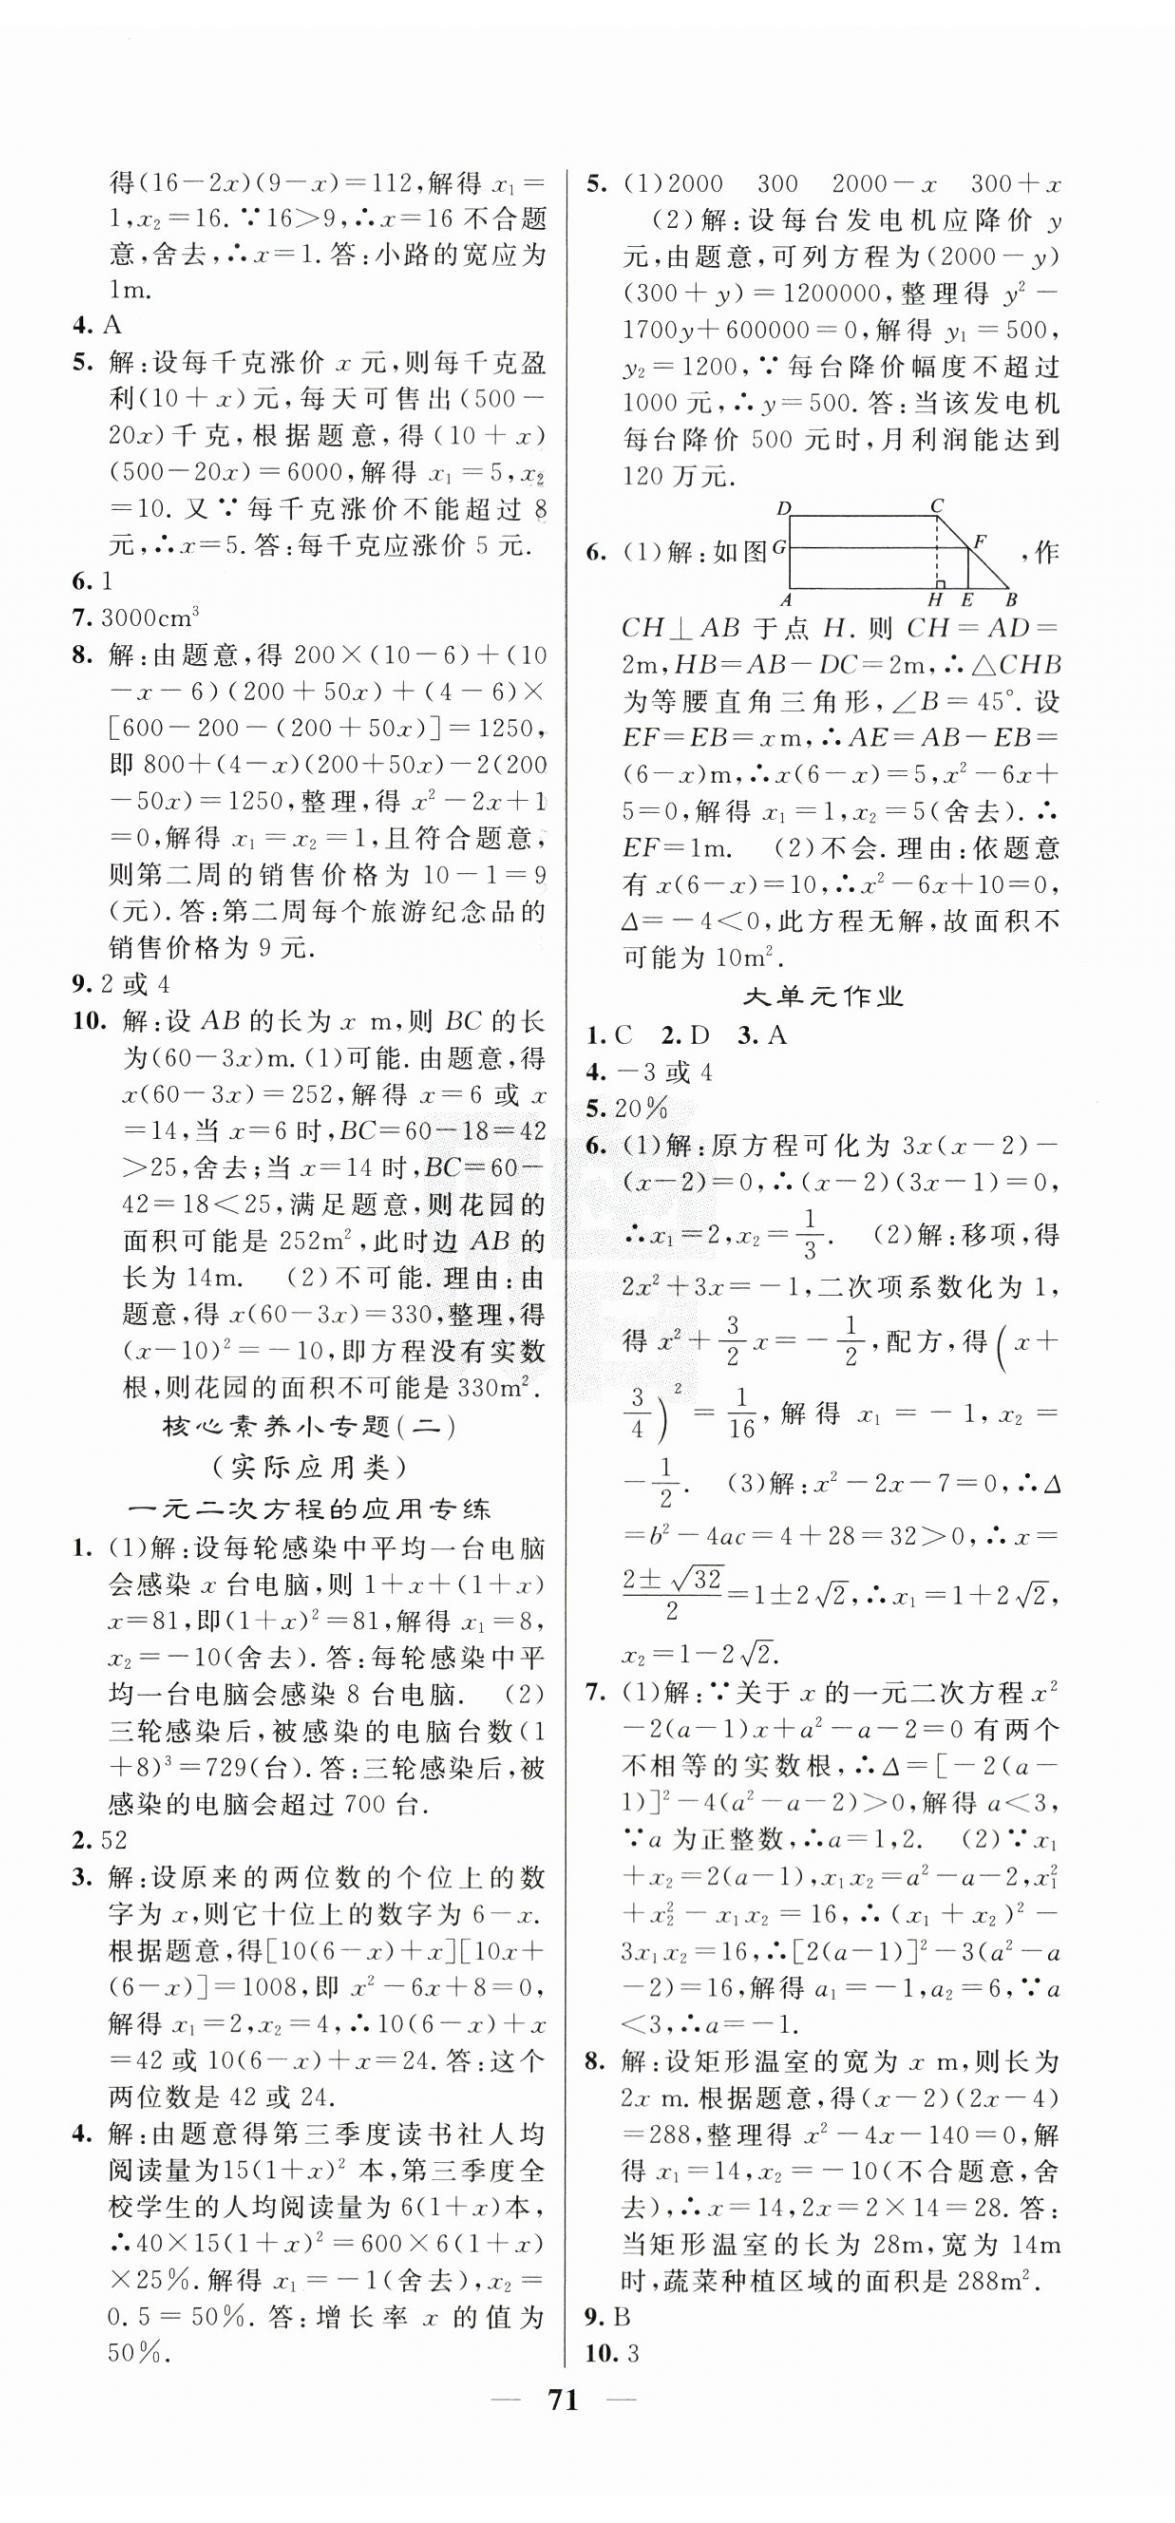 得(16－2x)(9－x)＝112,解得 x₁＝
1,x₂＝16.∵16＞9,∴x＝16 不合题
意,舍去,∴x＝1.答:小路的宽应为
1m.
4. A
5. 解:设每千克涨价 x 元,则每千克盈
利(10＋x)元,每天可售出(500－
20x)千克,根据题意,得(10＋x)
(500－20x)＝6000,解得 x₁＝5,x₂
＝10.又∵每千克涨价不能超过 8
元,∴x＝5.答:每千克应涨价 5 元.
6. 1
7. 3000cm³
8. 解:由题意,得 200×(10－6)＋(10
－x－6)(200＋50x)＋(4－6)×
[600－200－(200＋50x)]＝1250,
即 800＋(4－x)(200＋50x)－2(200
－50x)＝1250,整理,得 x²－2x＋1
＝0,解得 x₁＝x₂＝1,且符合题意,
则第二周的销售价格为 10－1＝9
(元).答:第二周每个旅游纪念品的
销售价格为 9 元.
9. 2 或 4
10. 解:设 AB 的长为 x m,则 BC 的长
为(60－3x)m.(1)可能.由题意,得
x(60－3x)＝252,解得 x＝6 或 x
＝14,当 x＝6 时,BC＝60－18＝42
＞25,舍去;当 x＝14 时,BC＝60－
42＝18＜25,满足题意,则花园的
面积可能是 252m²,此时边 AB 的
长为 14m. (2)不可能.理由:由
题意,得 x(60－3x)＝330,整理,得
(x－10)²＝－10,即方程没有实数
根,则花园的面积不可能是 330m².
核心素养小专题(二)
(实际应用类)
一元二次方程的应用专练
1. (1)解:设每轮感染中平均一台电脑
会感染 x 台电脑,则 1＋x＋(1＋x)
x＝81,即(1＋x)²＝81,解得 x₁＝8,
x₂＝－10(舍去).答:每轮感染中平
均一台电脑会感染 8 台电脑. (2)
三轮感染后,被感染的电脑台数(1
＋8)³＝729(台).答:三轮感染后,被
感染的电脑会超过 700 台.
2. 52
3. 解:设原来的两位数的个位上的数
字为 x,则它十位上的数字为 6－x.
根据题意,得[10(6－x)＋x][10x＋
(6－x)]＝1008,即 x²－6x＋8＝0,
解得 x₁＝2,x₂＝4,∴10(6－x)＋x
＝42 或 10(6－x)＋x＝24.答:这个
两位数是 42 或 24.
4. 解:由题意得第三季度读书社人均
阅读量为15(1＋x)² 本,第三季度全
校学生的人均阅读量为 6(1＋x)本,
∴40×15(1＋x)²＝600×6(1＋x)
×25%.解得 x₁＝－1(舍去),x₂＝
0.5＝50%.答:增长率 x 的值为
50%.
5. (1)2000 300 2000－x 300＋x
(2)解:设每台发电机应降价 y
元,由题意,可列方程为(2000－y)
(300＋y)＝1200000,整理得 y²－
1700y＋600000＝0,解得 y₁＝500,
y₂＝1200,∵每台降价幅度不超过
1000 元,∴y＝500.答:当该发电机
每台降价 500 元时,月利润能达到
120 万元.
D C
6. (1)解:如图 G F ,作
A H E B
CH⊥AB 于点 H.则 CH＝AD＝
2m,HB＝AB－DC＝2m,∴△CHB
为等腰直角三角形,∠B＝45°.设
EF＝EB＝xm,∴AE＝AB－EB＝
(6－x)m,∴x(6－x)＝5,x²－6x＋
5＝0,解得 x₁＝1,x₂＝5(舍去).∴
EF＝1m. (2)不会.理由:依题意
有 x(6－x)＝10,∴x²－6x＋10＝0,
Δ＝－4＜0,此方程无解,故面积不
可能为 10m².
大单元作业
1. C 2. D 3. A
4. －3 或 4
5. 20%
6. (1)解:原方程可化为 3x(x－2)－
(x－2)＝0,∴(x－2)(3x－1)＝0,
∴x₁＝2,x₂＝1/3. (2)解:移项,得
2x²＋3x＝－1,二次项系数化为 1,
得 x²＋3/2 x＝－1/2,配方,得(x＋
3/4)²＝1/16,解得 x₁＝－1,x₂＝
－1/2. (3)解:x²－2x－7＝0,∴Δ
＝b²－4ac＝4＋28＝32＞0,∴x＝
(2±√32)/2＝1±2√2,∴x₁＝1＋2√2,
x₂＝1－2√2.
7. (1)解:∵关于 x 的一元二次方程 x²
－2(a－1)x＋a²－a－2＝0 有两个
不相等的实数根,∴Δ＝[－2(a－
1)]²－4(a²－a－2)＞0,解得 a＜3,
∵a 为正整数,∴a＝1,2. (2)∵x₁
＋x₂＝2(a－1),x₁x₂＝a²－a－2,x₁²
＋x₂²－x₁x₂＝16,∴(x₁＋x₂)²－
3x₁x₂＝16,∴[2(a－1)]²－3(a²－a
－2)＝16,解得 a₁＝－1,a₂＝6,∵a
＜3,∴a＝－1.
8. 解:设矩形温室的宽为 x m,则长为
2x m.根据题意,得(x－2)(2x－4)
＝288,整理得 x²－4x－140＝0,解
得 x₁＝14,x₂＝－10(不合题意,舍
去),∴x＝14,2x＝2×14＝28.答:
当矩形温室的长为 28m,宽为 14m
时,蔬菜种植区域的面积是 288m².
9. B
10. 3
— 71 —